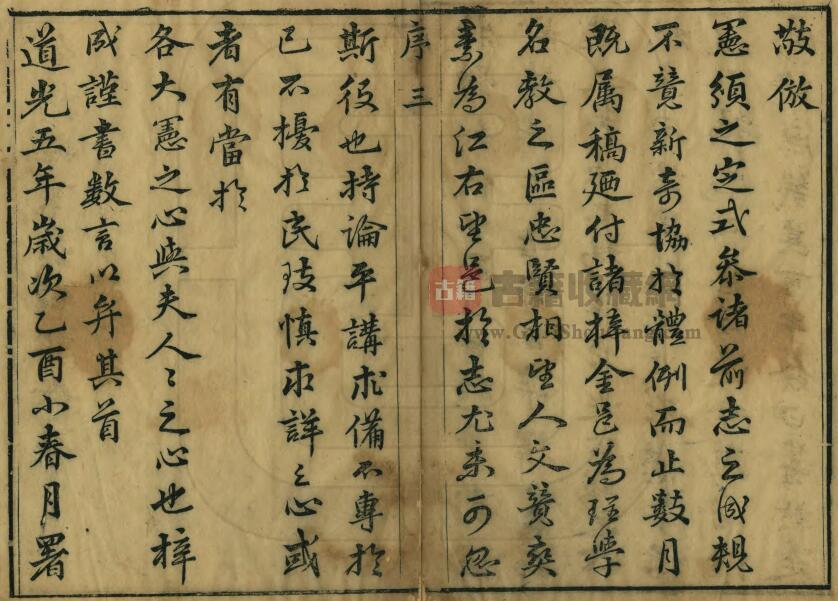 敬倣
憲頒之定式叅諸前志之成規
不競新奇協於體例而止數月
既属稿廼付諸梓金邑為理學
名教之區忠賢相望人文競爽
素為江右望邑於志尤未可忽
序 三
斯役也持論平講求備不專於
已不擾於民玆慎求詳之心或
者有當於
各大憲之心與夫人〻之心也梓
成謹書數言以弁其首
道光五年歲次乙酉小春月署
古籍
古籍收藏網